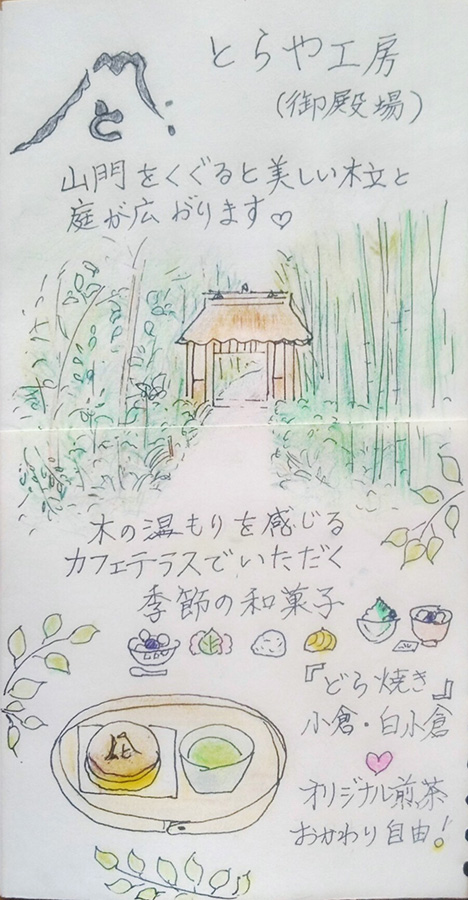 とらやエ房
(御殿場)
と
山門をくぐると美しい木立と
庭が広がります♡
木の温もりを感じる
カフェテラスでいただく
季節の和菓子
『どら焼き』
小倉・白小倉
オリジナル煎茶
おかわり自由!
と